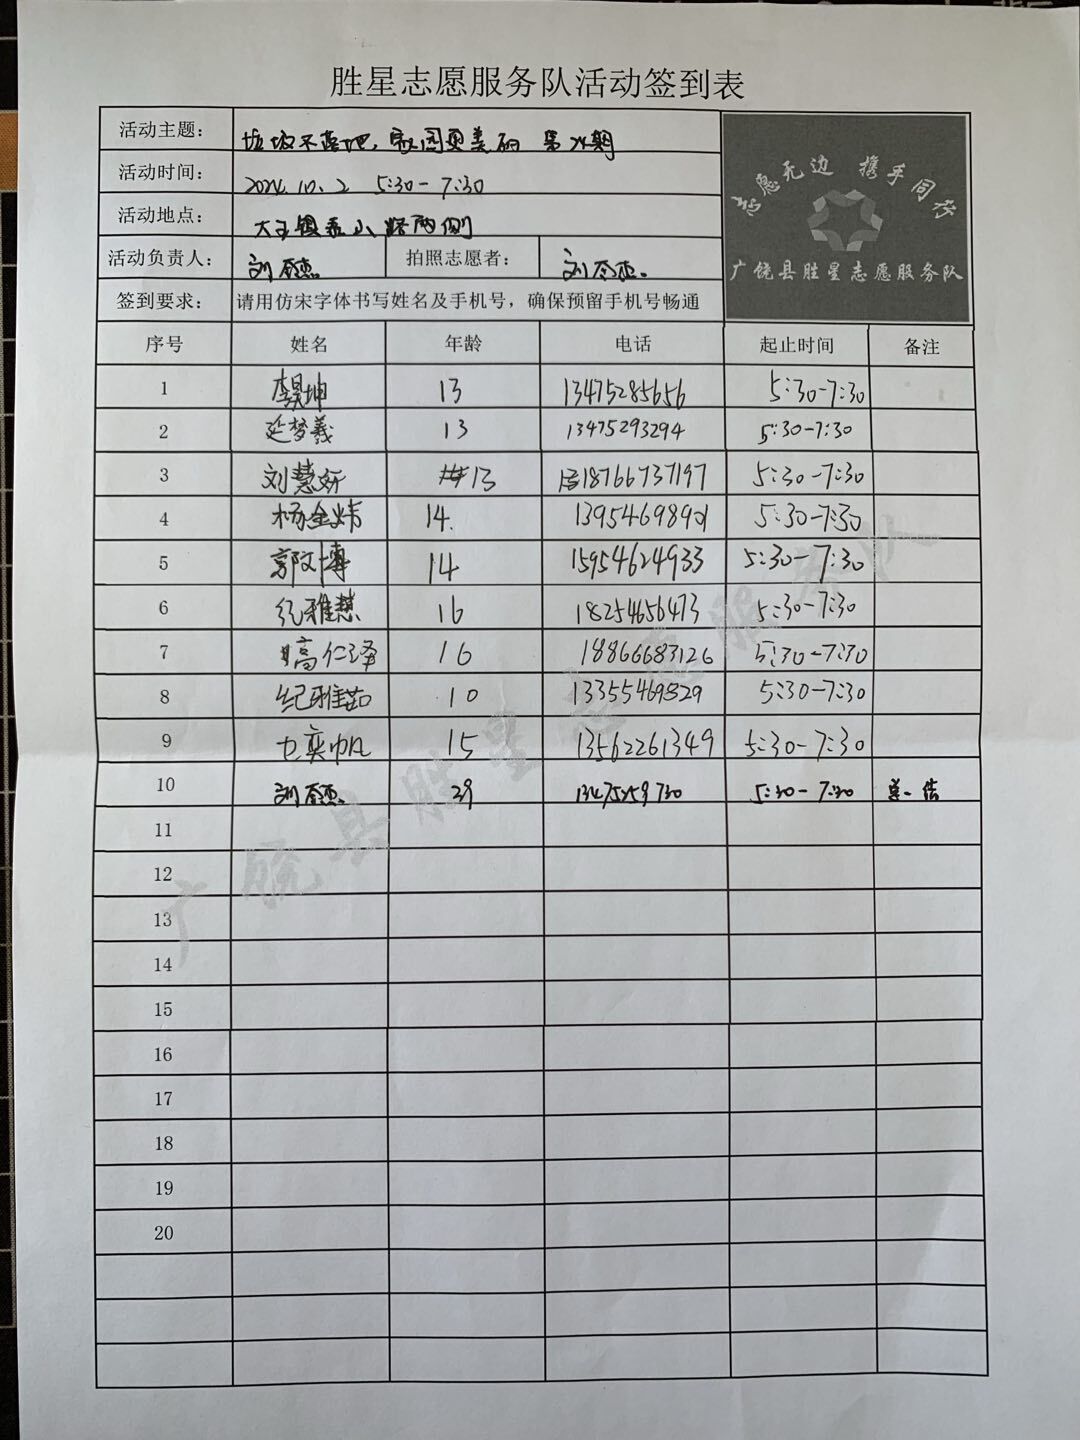 胜星志愿服务队活动签到表
活动主题： 垃圾不落地，家园更美丽 第 期
活动时间： 2024.10.2 5:30-7:30
活动地点： 大王镇 路两侧
志愿无边 携手同行
广饶县胜星志愿服务队
活动负责人： 刘 杰 拍照志愿者： 刘 杰
签到要求： 请用仿宋字体书写姓名及手机号，确保预留手机号畅通
序号 姓名 年龄 电话 起止时间 备注
1 李昊坤 13 13475285656 5:30-7:30
2 延梦羲 13 13475293294 5:30-7:30
3 刘慧妍 13 18766737197 5:30-7:30
4 杨金炜 14. 5:30-7:30
5 郭文博 14 15954624933 5:30-7:30
6 纪雅慧 16 18254656473 5:30-7:30
7 高仁泽 16 18866683126 5:30-7:30
8 纪雅茹 10 13355469829 5:30-7:30
9 15 13562261349 5:30-7:30
10 刘 杰 39 13475259730 5:30-7:30
11
12
13
14
15
16
17
18
19
20
广饶县胜星志愿服务队